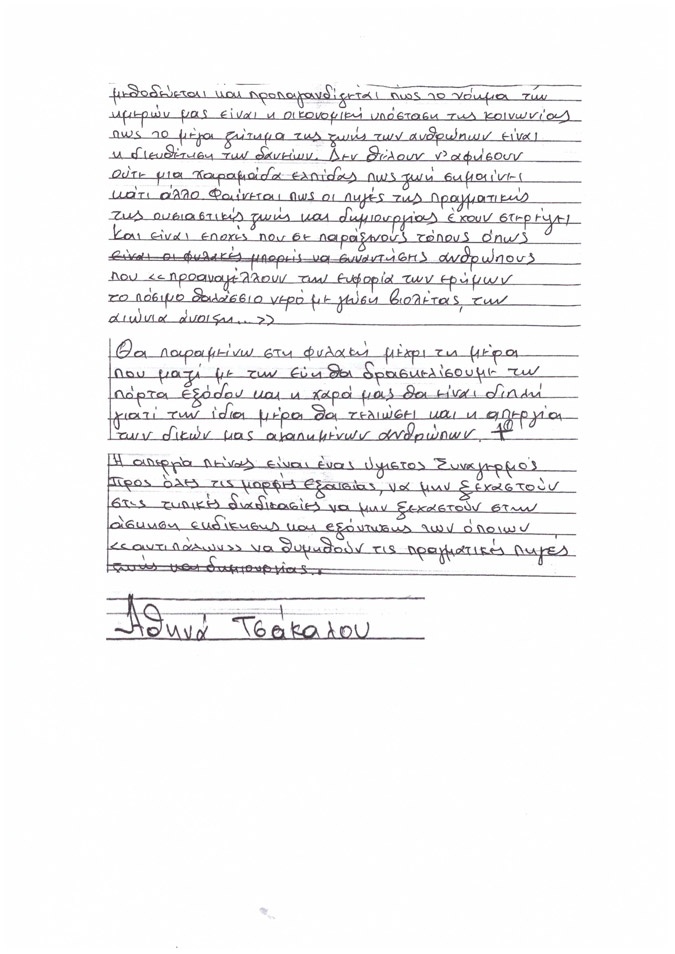 μεθοδεύεται και προπαγανδίζεται πως το νόημα των
ημερών μας είναι η οικονομική υπόσταση της κοινωνίας
πως το μέγα ζήτημα της ζωής των ανθρώπων είναι
η διευθέτηση των δανείων. Δεν θέλουν ν' αφήσουν
ούτε μια χαραμάδα ελπίδας πως ζωή σημαίνει
κάτι άλλο. Φαίνεται πως οι πηγές της πραγματικής
της ουσιαστικής ζωής και δημιουργίας έχουν στερέψει
Και είναι εποχές που σε παράξενους τόπους όπως
είναι οι φυλακές μπορείς να συναντήσεις ανθρώπους
που <<προαναγγέλλουν την ευφορία των ερήμων
το πόσιμο θαλάσσιο νερό με γεύση βιολέτας, την
αιώνια άνοιξη...>>
Θα παραμείνω στη φυλακή μέχρι τη μέρα
που μαζί με την Εύη θα δρασκελίσουμε την
πόρτα εξόδου και η χαρά μας θα είναι διπλή
γιατί την ίδια μέρα θα τελειώσει και η απεργία
των δικών μας αγαπημένων ανθρώπων.
Η απεργία πείνας είναι ένας ύψιστος Συναγερμός
προς όλες τις μορφές εξουσίας, να μην ξεχαστούν
στις τυπικές διαδικασίες να μην ξεχαστούν στην
άσκηση εκδίκησης και εξόντωσης των όποιων
<<αντιπάλων>> να θυμηθούν τις πραγματικές πηγές
ζωής και δημιουργίας...
Αθηνά Τσάκαλου